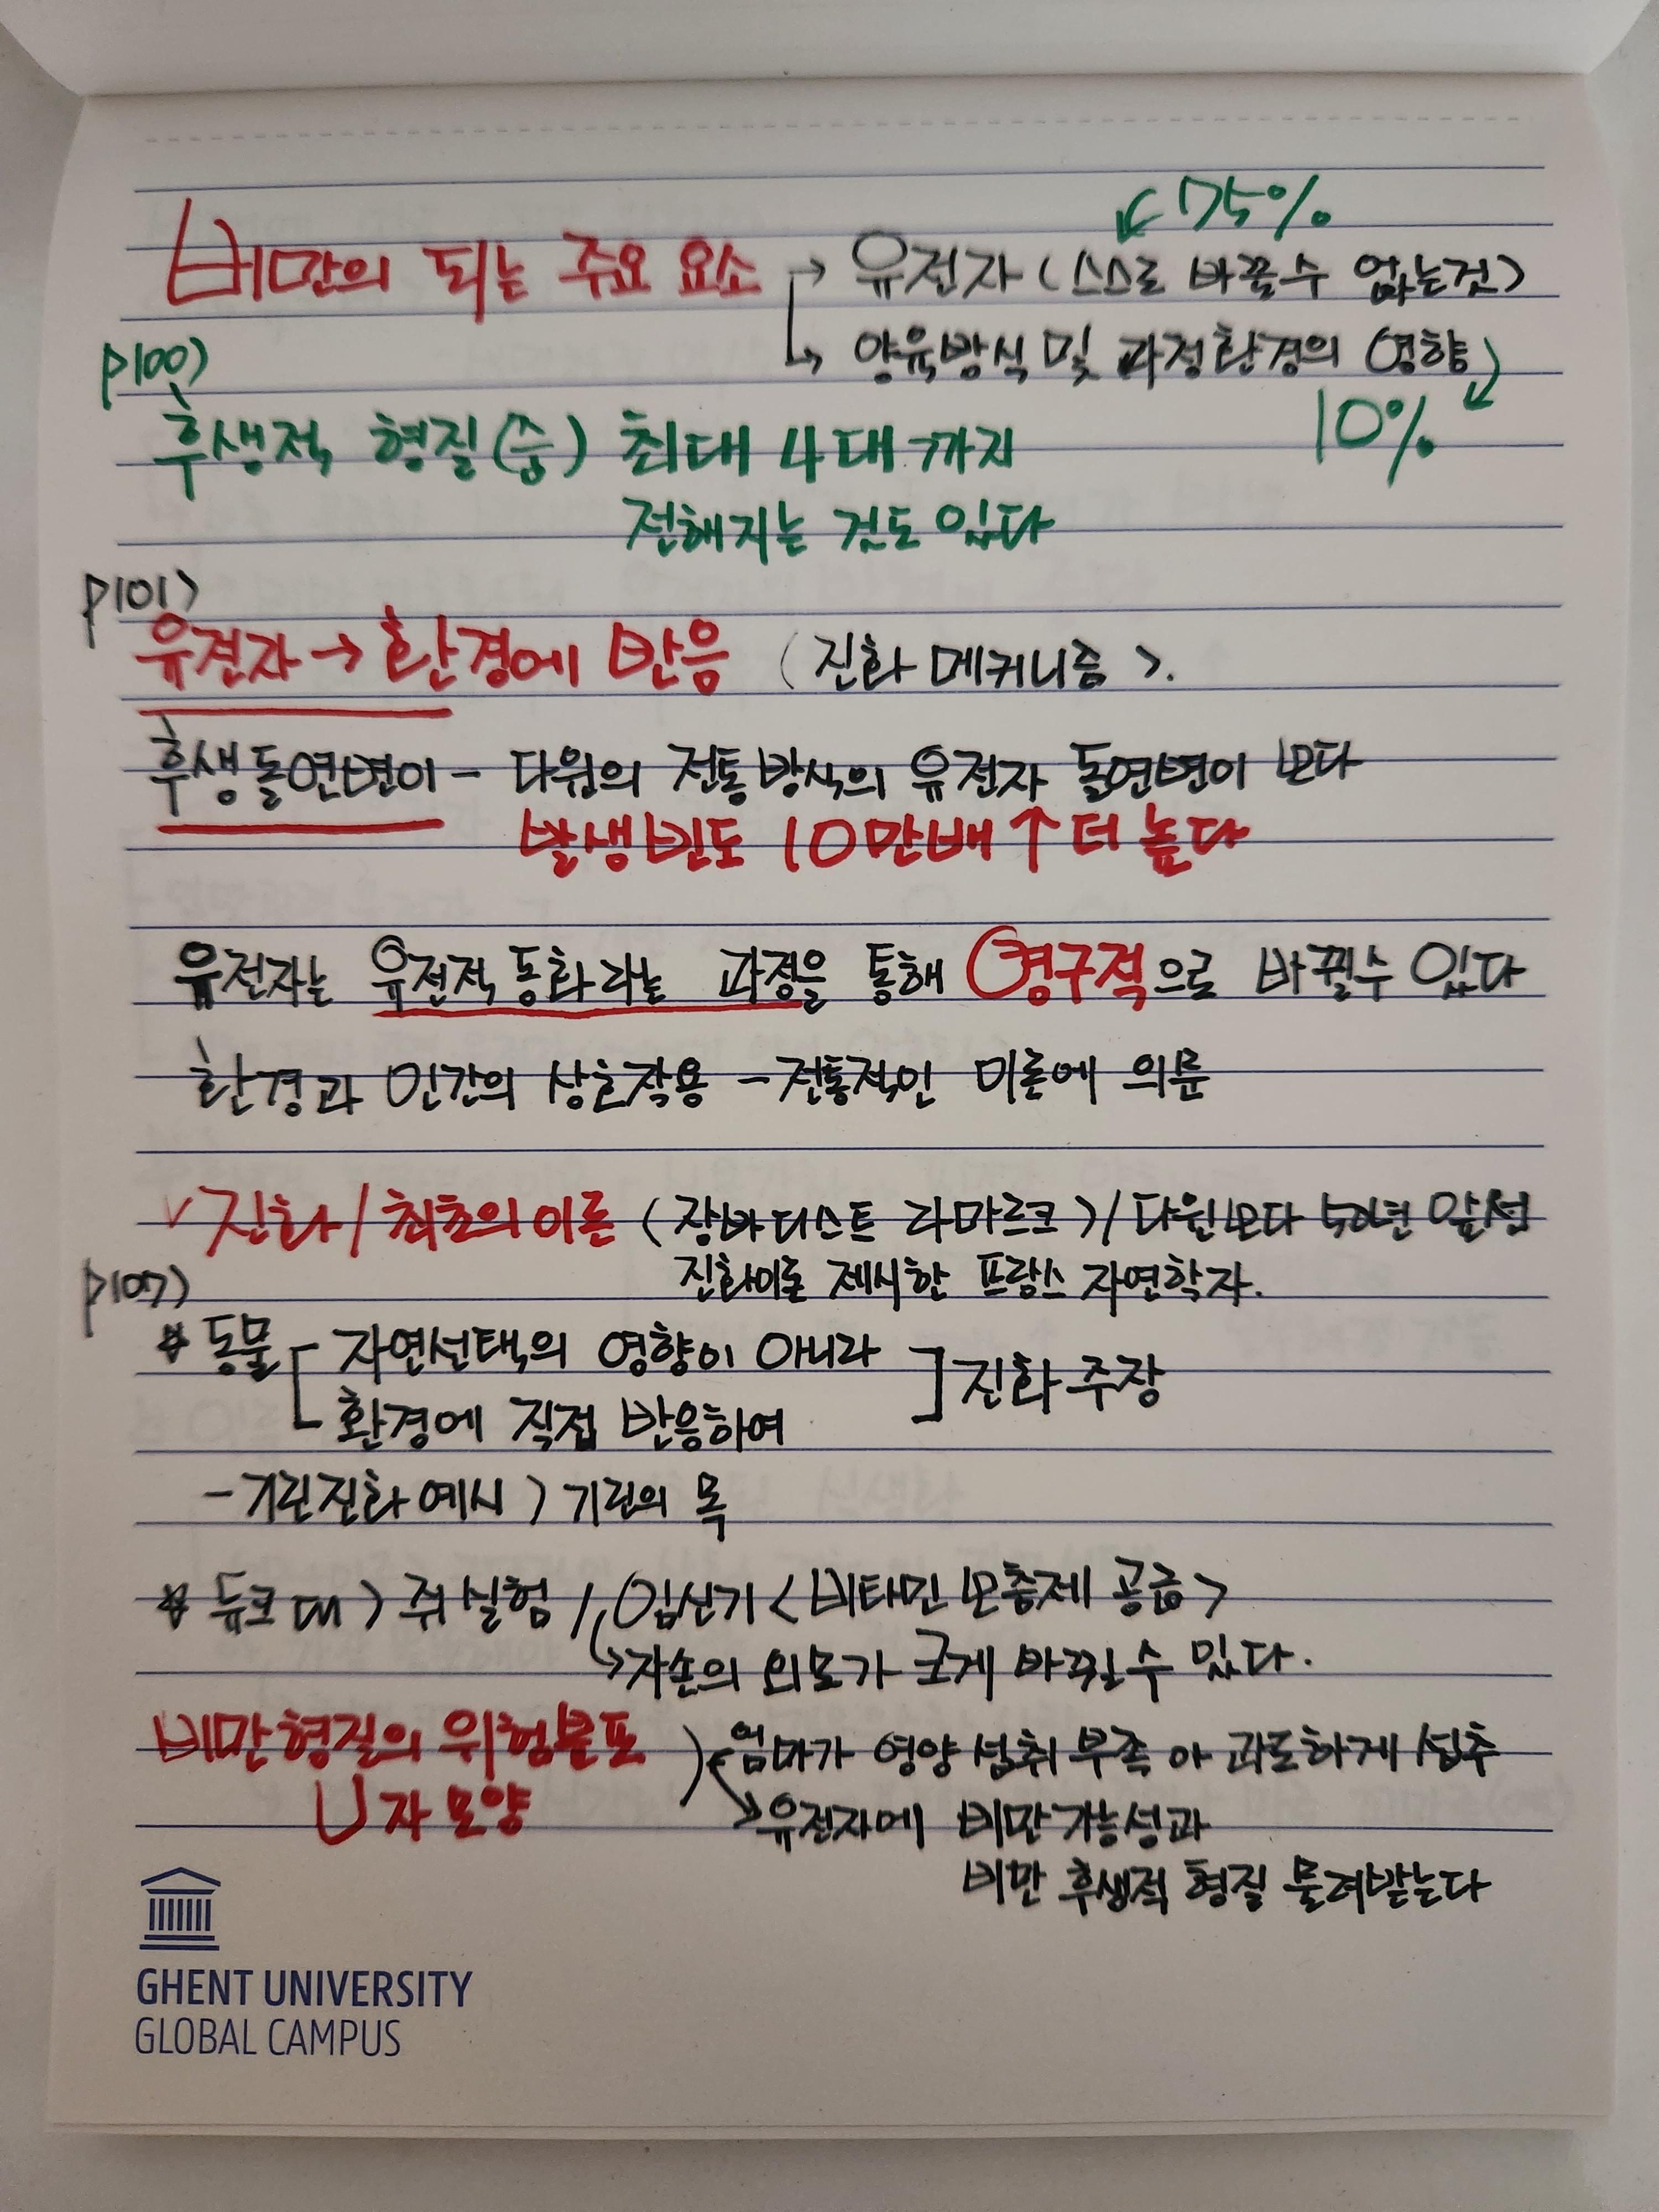 75%
비만의 되는 주요 요소 → 유전자 (스스로 바꿀수 없는것)
→ 양육방식 및 과정환경의 영향
10%
p100)
후생적 형질(습) 최대 4대까지
전해지는 것도 있다
p101)
유전자 → 환경에 반응 (진화 메커니즘).
후생돌연변이 - 다윈의 전통방식의 유전자 돌연변이 보다
발생빈도 10만배 ↑ 더 높다
유전자는 유전적 동화라는 과정을 통해 영구적으로 바뀔수 있다
환경과 인간의 상호작용 - 전통적인 이론에 의문
✓ 진화 / 최초의 이론 (장바티스트 라마르크) / 다윈보다 50년 앞선
진화이론 제시한 프랑스 자연학자.
p107)
* 동물 [ 자연선택의 영향이 아니라
환경에 직접 반응하여 ] 진화 주장
- 기린진화 예시) 기린의 목
* 듀크대) 쥐실험 / 임신기 <비타민 보충제 공급>
→ 자손의 외모가 크게 바뀔 수 있다.
비만형질의 위험분포 ) 엄마가 영양섭취 부족 아 과도하게 섭추
U자 모양 → 유전자에 비만가능성과
비만 후생적 형질 물려받는다
GHENT UNIVERSITY
GLOBAL CAMPUS